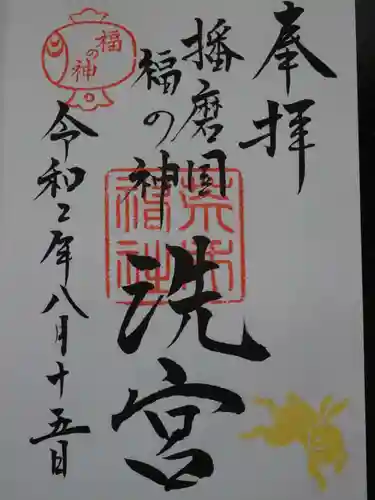 奉拝
播磨国
福の神
洗宮
令和二年八月十五日
福の神